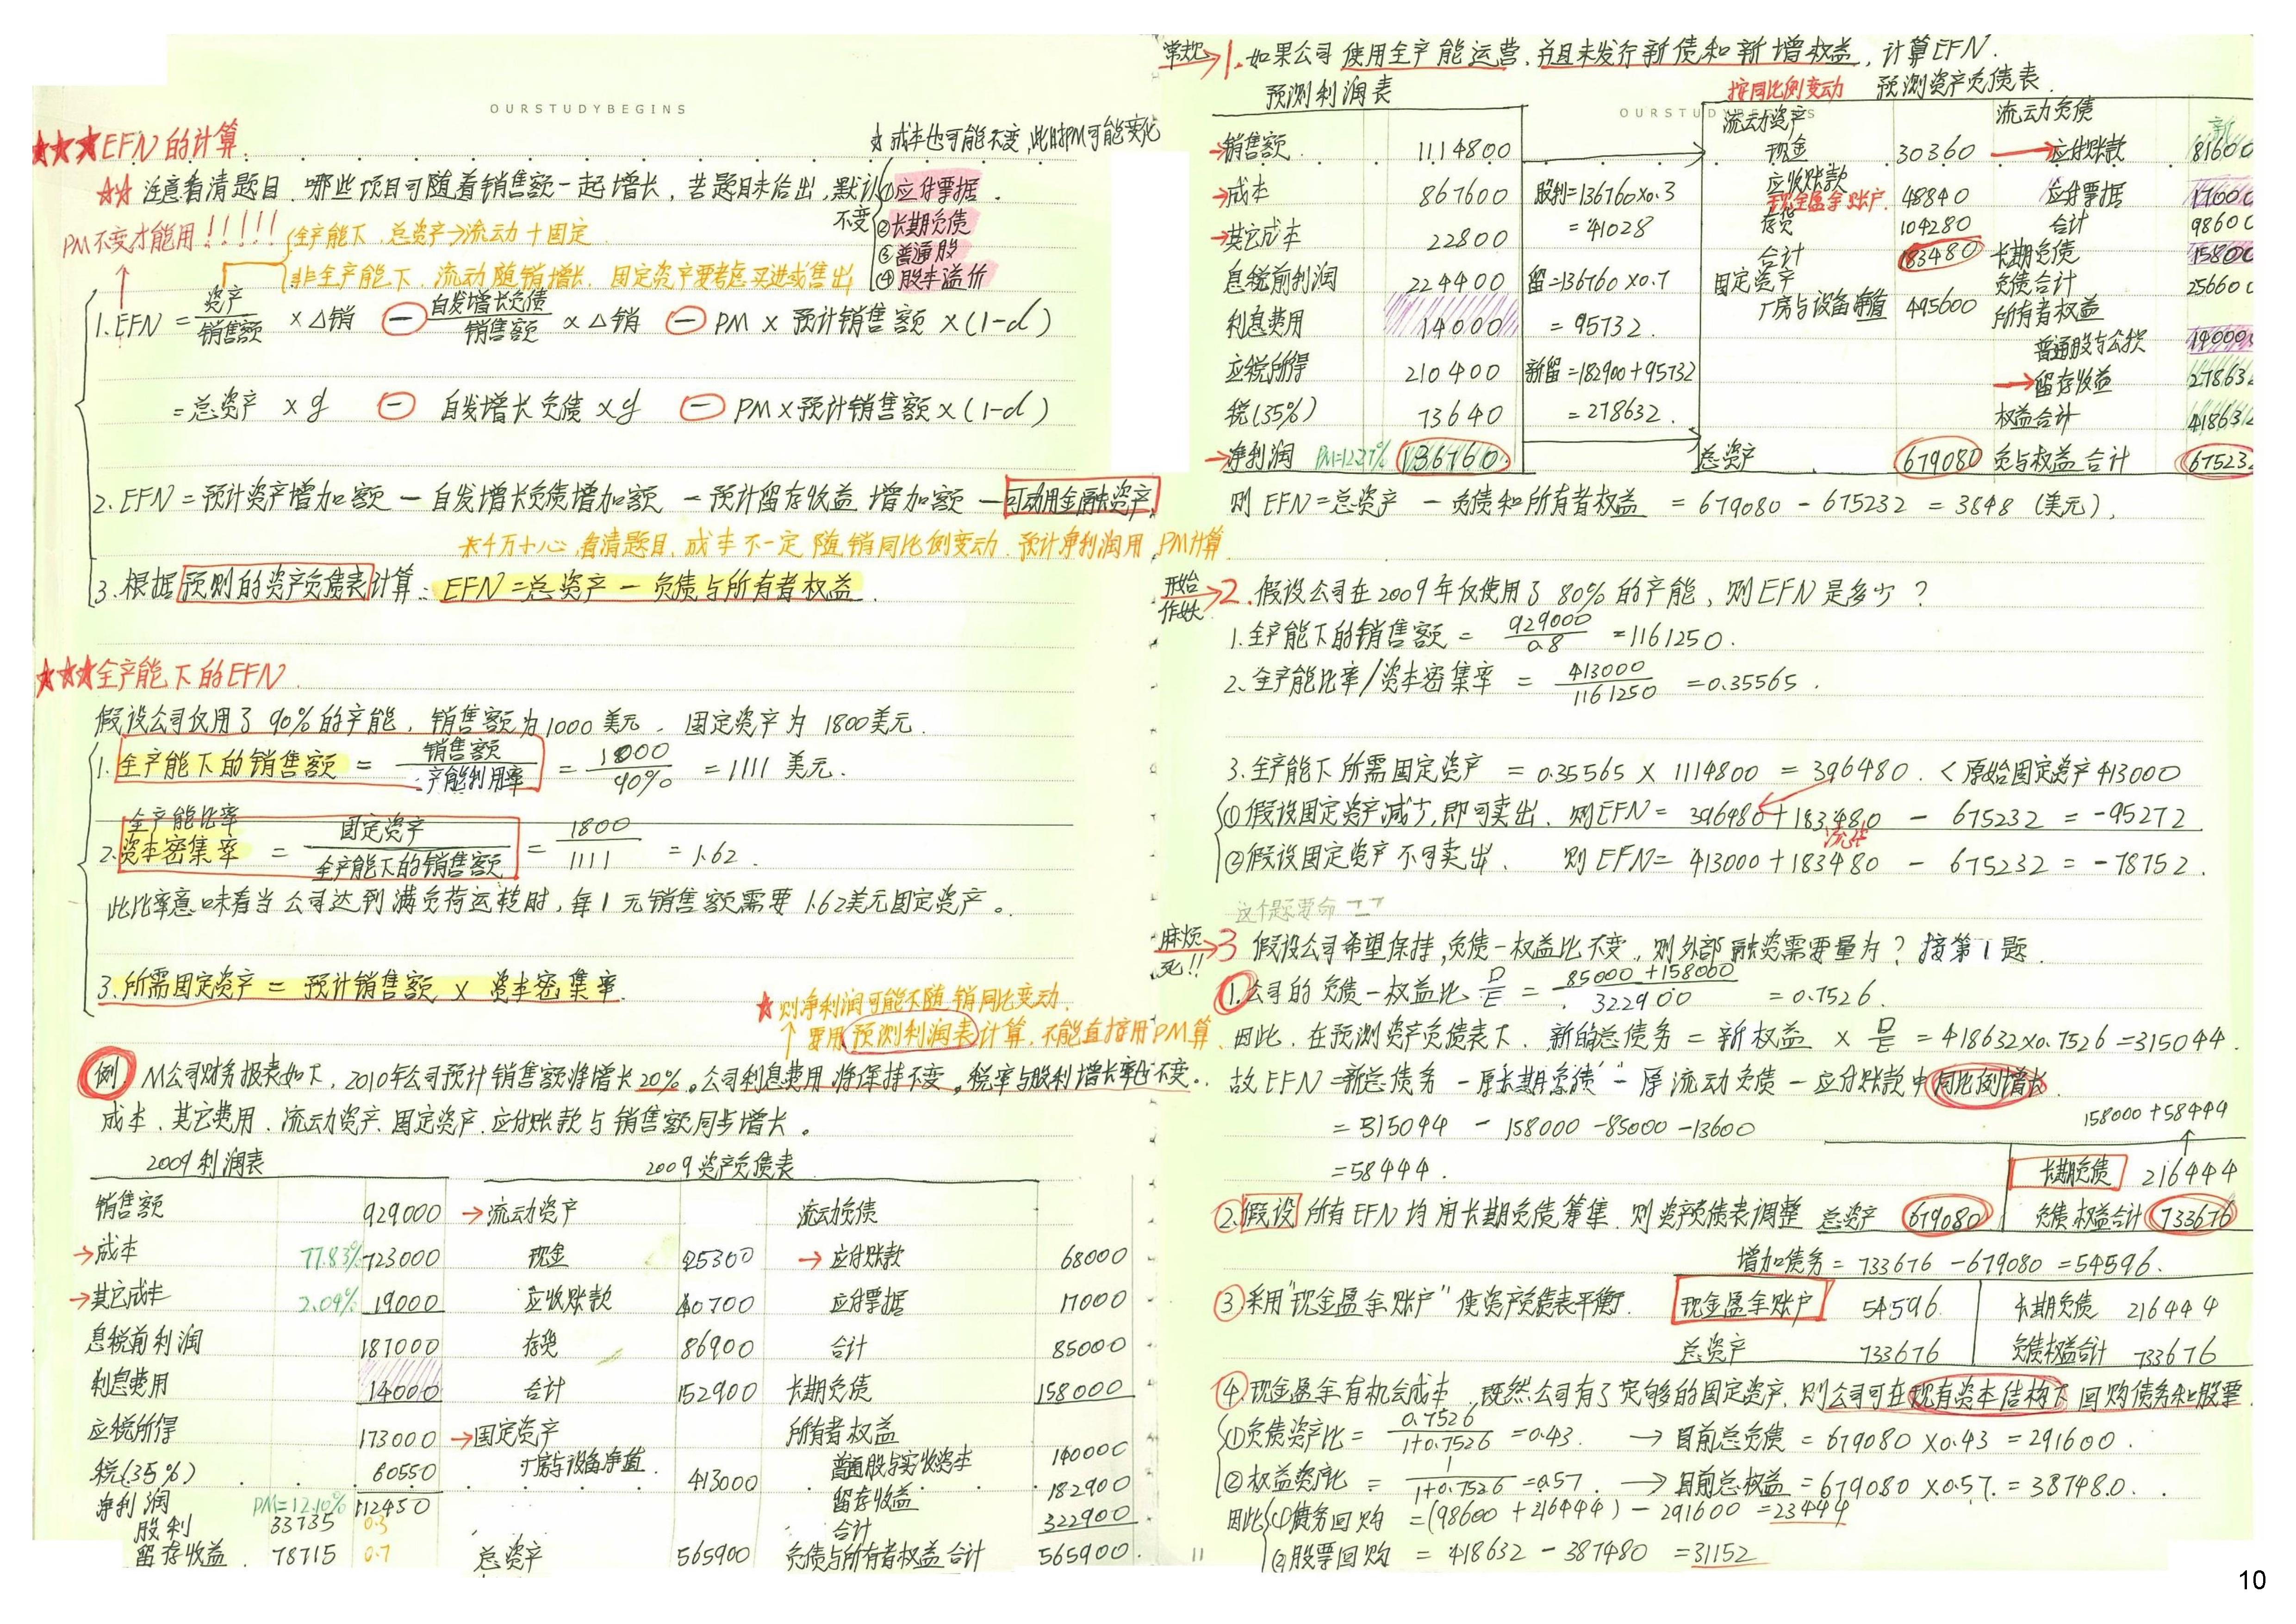 OURSTUDYBEGINS
★★★EFN的计算.
☆成本也可能不变,此时PM可能变化
★★ 注意看清题目.哪些项目可随着销售额一起增长,若题目未给出,默认不变
①应付票据.
②长期负债
③普通股
④股本溢价
PM不变才能用!!!!!
全产能下.总资产→流动+固定.
非全产能下.流动随销增长.固定资产要考虑买进或售出
1.EFN = 资产/销售额 × △销 － 自发增长负债/销售额 × △销 － PM × 预计销售额 ×(1-d)
=总资产 × g － 自发增长负债 × g － PM × 预计销售额 ×(1-d)
2.EFN = 预计资产增加额 － 自发增长负债增加额 － 预计留存收益增加额 － 可动用金融资产.
*千万小心,看清题目.成本不一定随销同比例变动.预计净利润用PM计算
3.根据预测的资产负债表计算: EFN = 总资产 － 负债与所有者权益.
★★★全产能下的EFN.
假设公司仅用了90%的产能,销售额为1000美元.固定资产为1800美元.
1.全产能下的销售额 = 销售额/产能利用率 = 1000/90% = 1111 美元.
全产能比率
2.资本密集率 = 固定资产/全产能下的销售额 = 1800/1111 = 1.62.
此比率意味着当公司达到满负荷运转时,每1元销售额需要1.62美元固定资产。
3.所需固定资产 = 预计销售额 × 资本密集率.
★则净利润可能不随销同比变动.
↑要用预测利润表计算,不能直接用PM算
例 M公司财务报表如下,2010年公司预计销售额将增长20%.公司利息费用将保持不变,税率与股利增长率也不变.
成本.其它费用.流动资产.固定资产.应付账款与销售额同步增长。
2009利润表
销售额 929000
→成本 77.83% 723000
→其它成本 2.04% 19000
息税前利润 187000
利息费用 14000
应税所得 173000
税(35%) 60550
净利润 PM=12.10% 112450
股利 33735 0.3
留存收益 78715 0.7
2009资产负债表
→流动资产 流动负债
现金 25300 →应付账款 68000
应收账款 40700 应付票据 17000
存货 86900 合计 85000
合计 152900 长期负债 158000
→固定资产 所有者权益
厂房与设备净值 413000 普通股与实收资本 140000
留存收益 182900
合计 322900
总资产 565900 负债与所有者权益合计 565900.
常规→1.如果公司使用全产能运营.并且未发行新债和新增权益,计算EFN.
预测利润表
→销售额 1114800
→成本 867600
→其它成本 22800
息税前利润 224400
利息费用 14000
应税所得 210400
税(35%) 73640
→净利润 PM=12.27% 136760
股利=136760×0.3
=41028
留=136760×0.7
=95732.
新留=182900+95732
=278632.
按同比例变动 预测资产负债表.
OURSTUD S
流动资产 流动负债 新
现金 30360 →应付账款 81600
应收账款 48840 应付票据 17000
现金盈余账户.
存货 104280 合计 98600
合计 183480 长期负债 15800
固定资产 负债合计 25660
厂房与设备净值 495600 所有者权益
普通股与公积 14000
→留存收益 27863
权益合计 41863
总资产 679080 负与权益合计 67523
则EFN=总资产 － 负债和所有者权益 = 679080 － 675232 = 3848 (美元).
开始作妖→2.假设公司在2009年仅使用了80%的产能,则EFN是多少?
1.全产能下的销售额 = 929000/0.8 = 1161250.
2.全产能比率/资本密集率 = 413000/1161250 = 0.35565.
3.全产能下所需固定资产 = 0.35565 × 1114800 = 396480. < 原始固定资产413000
①假设固定资产减少,即可卖出.则EFN = 396480+183480 － 675232 = -95272
流动
②假设固定资产不可卖出. 则EFN = 413000+183480 － 675232 = -78752.
这个题要命 TT
麻烦死!!→3 假设公司希望保持,负债-权益比不变,则外部融资需要量为?接第1题.
1.公司的负债-权益比 D/E = 85000+158000/322900 = 0.7526.
因此.在预测资产负债表下.新的总债务 = 新权益 × D/E = 418632×0.7526 = 315044.
故EFN = 新总债务 － 原长期负债 － 原流动负债 － 应付账款中同比例增长.
= 315044 － 158000 -85000 -13600
=58444.
158000+58444
长期负债 216444
②假设所有EFN均用长期负债筹集.则资产负债表调整 总资产 679080 负债权益合计 733676
增加债务 = 733676 － 679080 = 54596.
③采用"现金盈余账户"使资产负债表平衡. 现金盈余账户 54596. 长期负债 216444
总资产 733676 负债权益合计 733676
④现金盈余有机会成本.既然公司有了足够的固定资产.则公司可在现有资本结构下回购债务和股票.
①负债资产比 = 0.7526/1+0.7526 = 0.43. → 目前总负债 = 679080 × 0.43 = 291600.
②权益资产比 = 1/1+0.7526 = 0.57. → 目前总权益 = 679080 × 0.57. = 387480.
因此 ①债务回购 = (98600 + 216444) － 291600 = 23444
②股票回购 = 418632 － 387480 = 31152
11
10